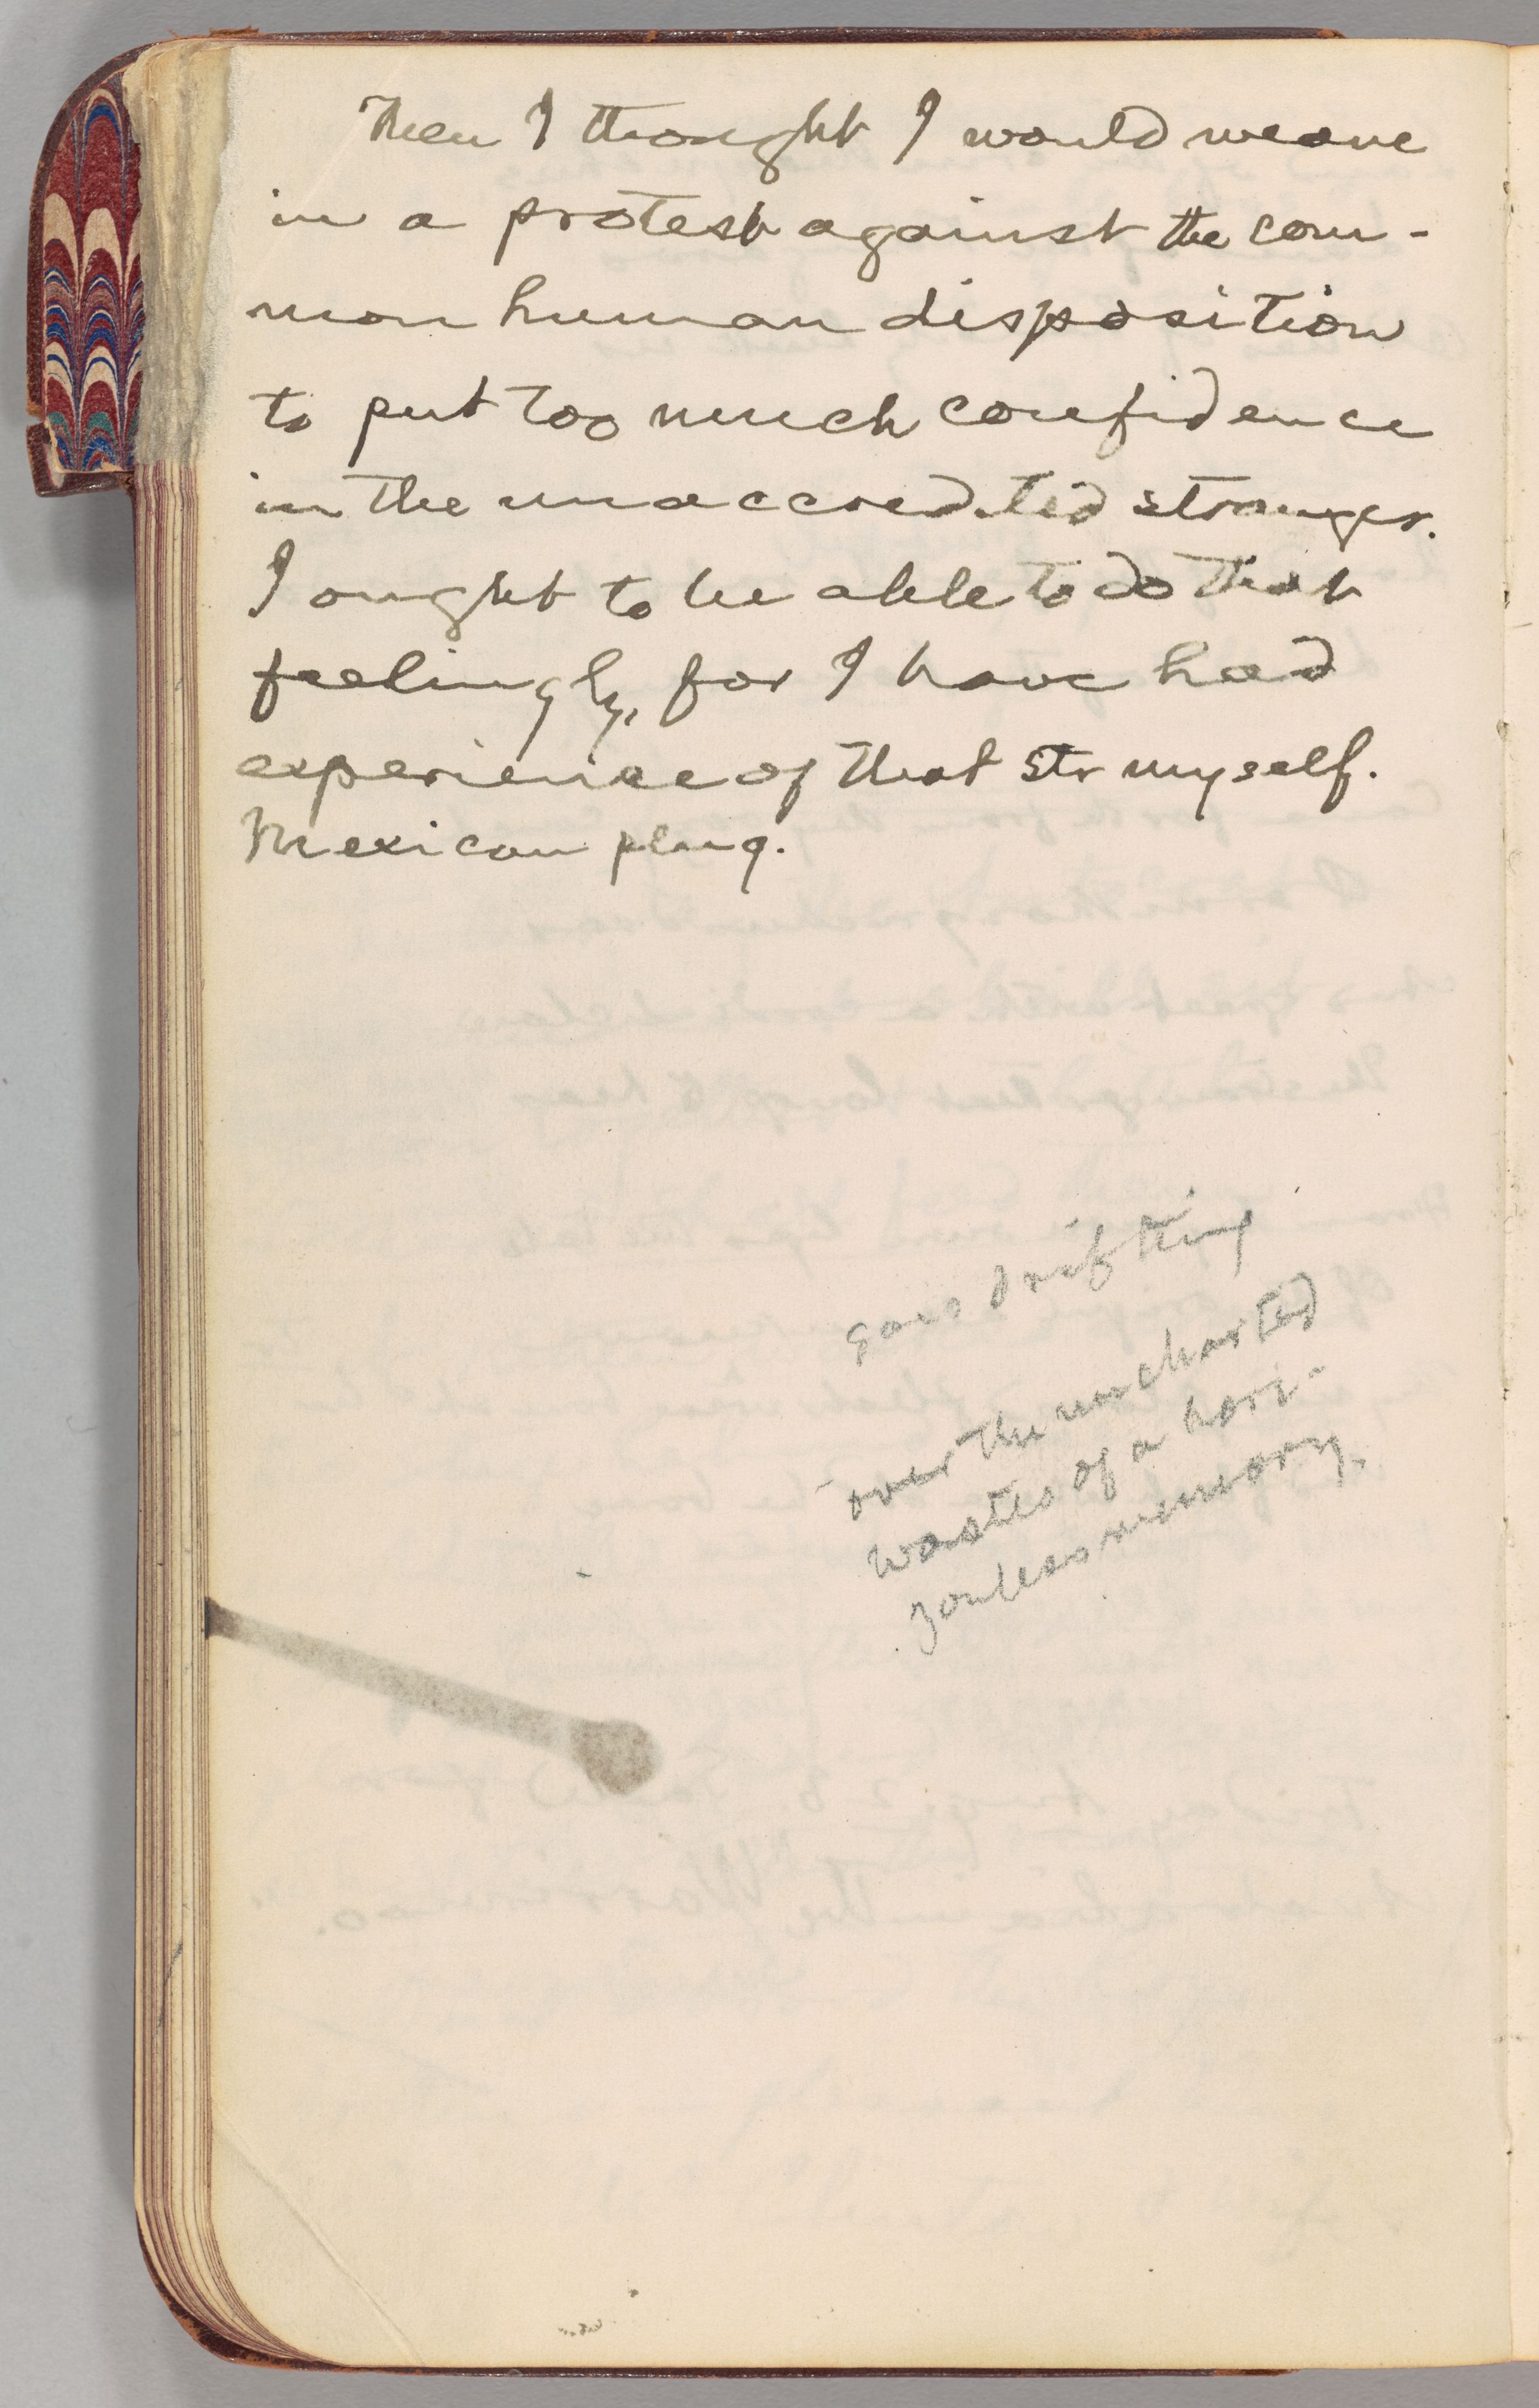 Then I thought I would weave
in a protest against the com-
mon human disposition
to put too much confidence
in the unaccredited stranger.
I ought to be able to do that
feelingly, for I have had
experience of that str myself.
Mexican plug.
goes drifting
over the uncharted
wastes of a hori-
zonless memory.